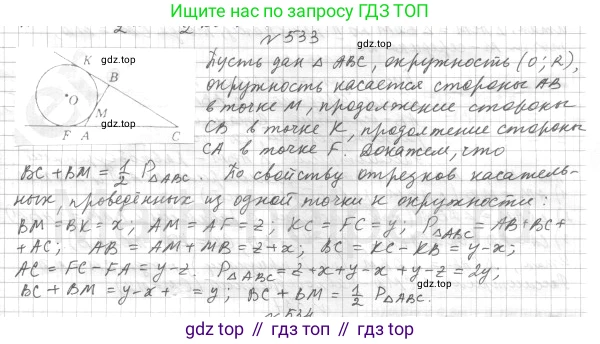 Ищите нас по запросу ГДЗ ТОП
gdz.top
№ 533
K
B
O
M
F
A
C
gdz.top
Пусть дан △ ABC, окружность (O; R),
окружность касается стороны AB
в точке M, продолжение стороны
CB в точке K, продолжение стороны
CA в точке F. Докажем, что
BC + BM = 1/2 P△ABC. По свойству отрезков касатель-
ных, проведённых из одной точки к окружности:
BM = BK = x; AM = AF = z; KC = FC = y; P△ABC = AB + BC +
+ AC; AB = AM + MB = z + x; BC = KC - KB = y - x;
AC = FC - FA = y - z. P△ABC = z + x + y - x + y - z = 2y;
gdz.top
BC + BM = y - x + = y; BC + BM = 1/2 P△ABC.
№ 534
gdz.top // гдз.топ // гдз топ